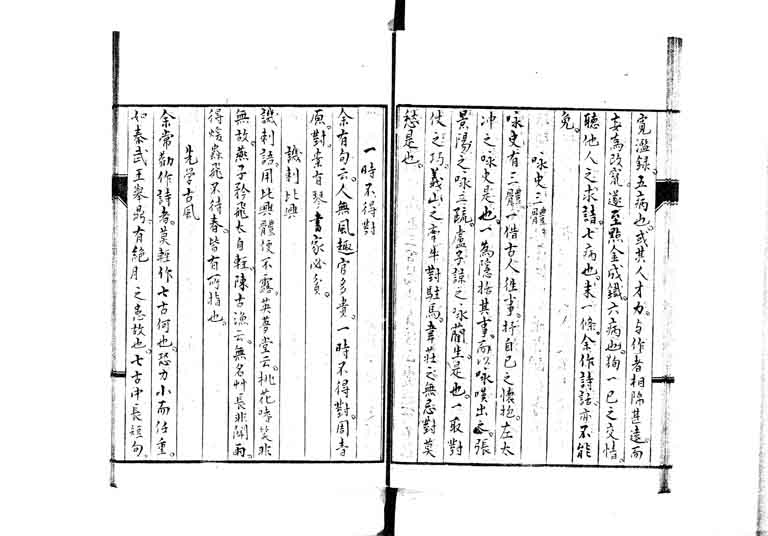 寬濫録。五病也。或其人才力。与作者相隔甚遠。而
妄為改竄。遂至點金成鐵。六病也。徇一己之交情。
聽他人之求請。七病也。末一條。余作詩話。亦不能
免。
詠史三體
詠史有三體。一借古人往事。抒自己之懷抱。左太
冲之咏史是也。一為隱括其事。而以咏嘆出之。張
景陽之咏二疏。盧子諒之咏藺生。是也。一取對
仗之巧。義山之牽牛對駐馬。韋莊之無忌對莫
愁是也。
一時不得對
余有句云。人無風趣官多貴。一時不得對。周青
原。對。案有琴書家必貧。
譏刺比興
譏刺語。用比興體。便不露。英夢堂云。桃花嗜笑非
無故。燕子矜飛太自輕。陳古漁云。無名艸長非關雨。
得暖蟲飛不待春。皆有所指也。
先學古風
余常勸作詩者。莫輕作七古。何也。恐力小而任重。
如秦武王舉鼎。有絕月之患故也。七古中長短句。